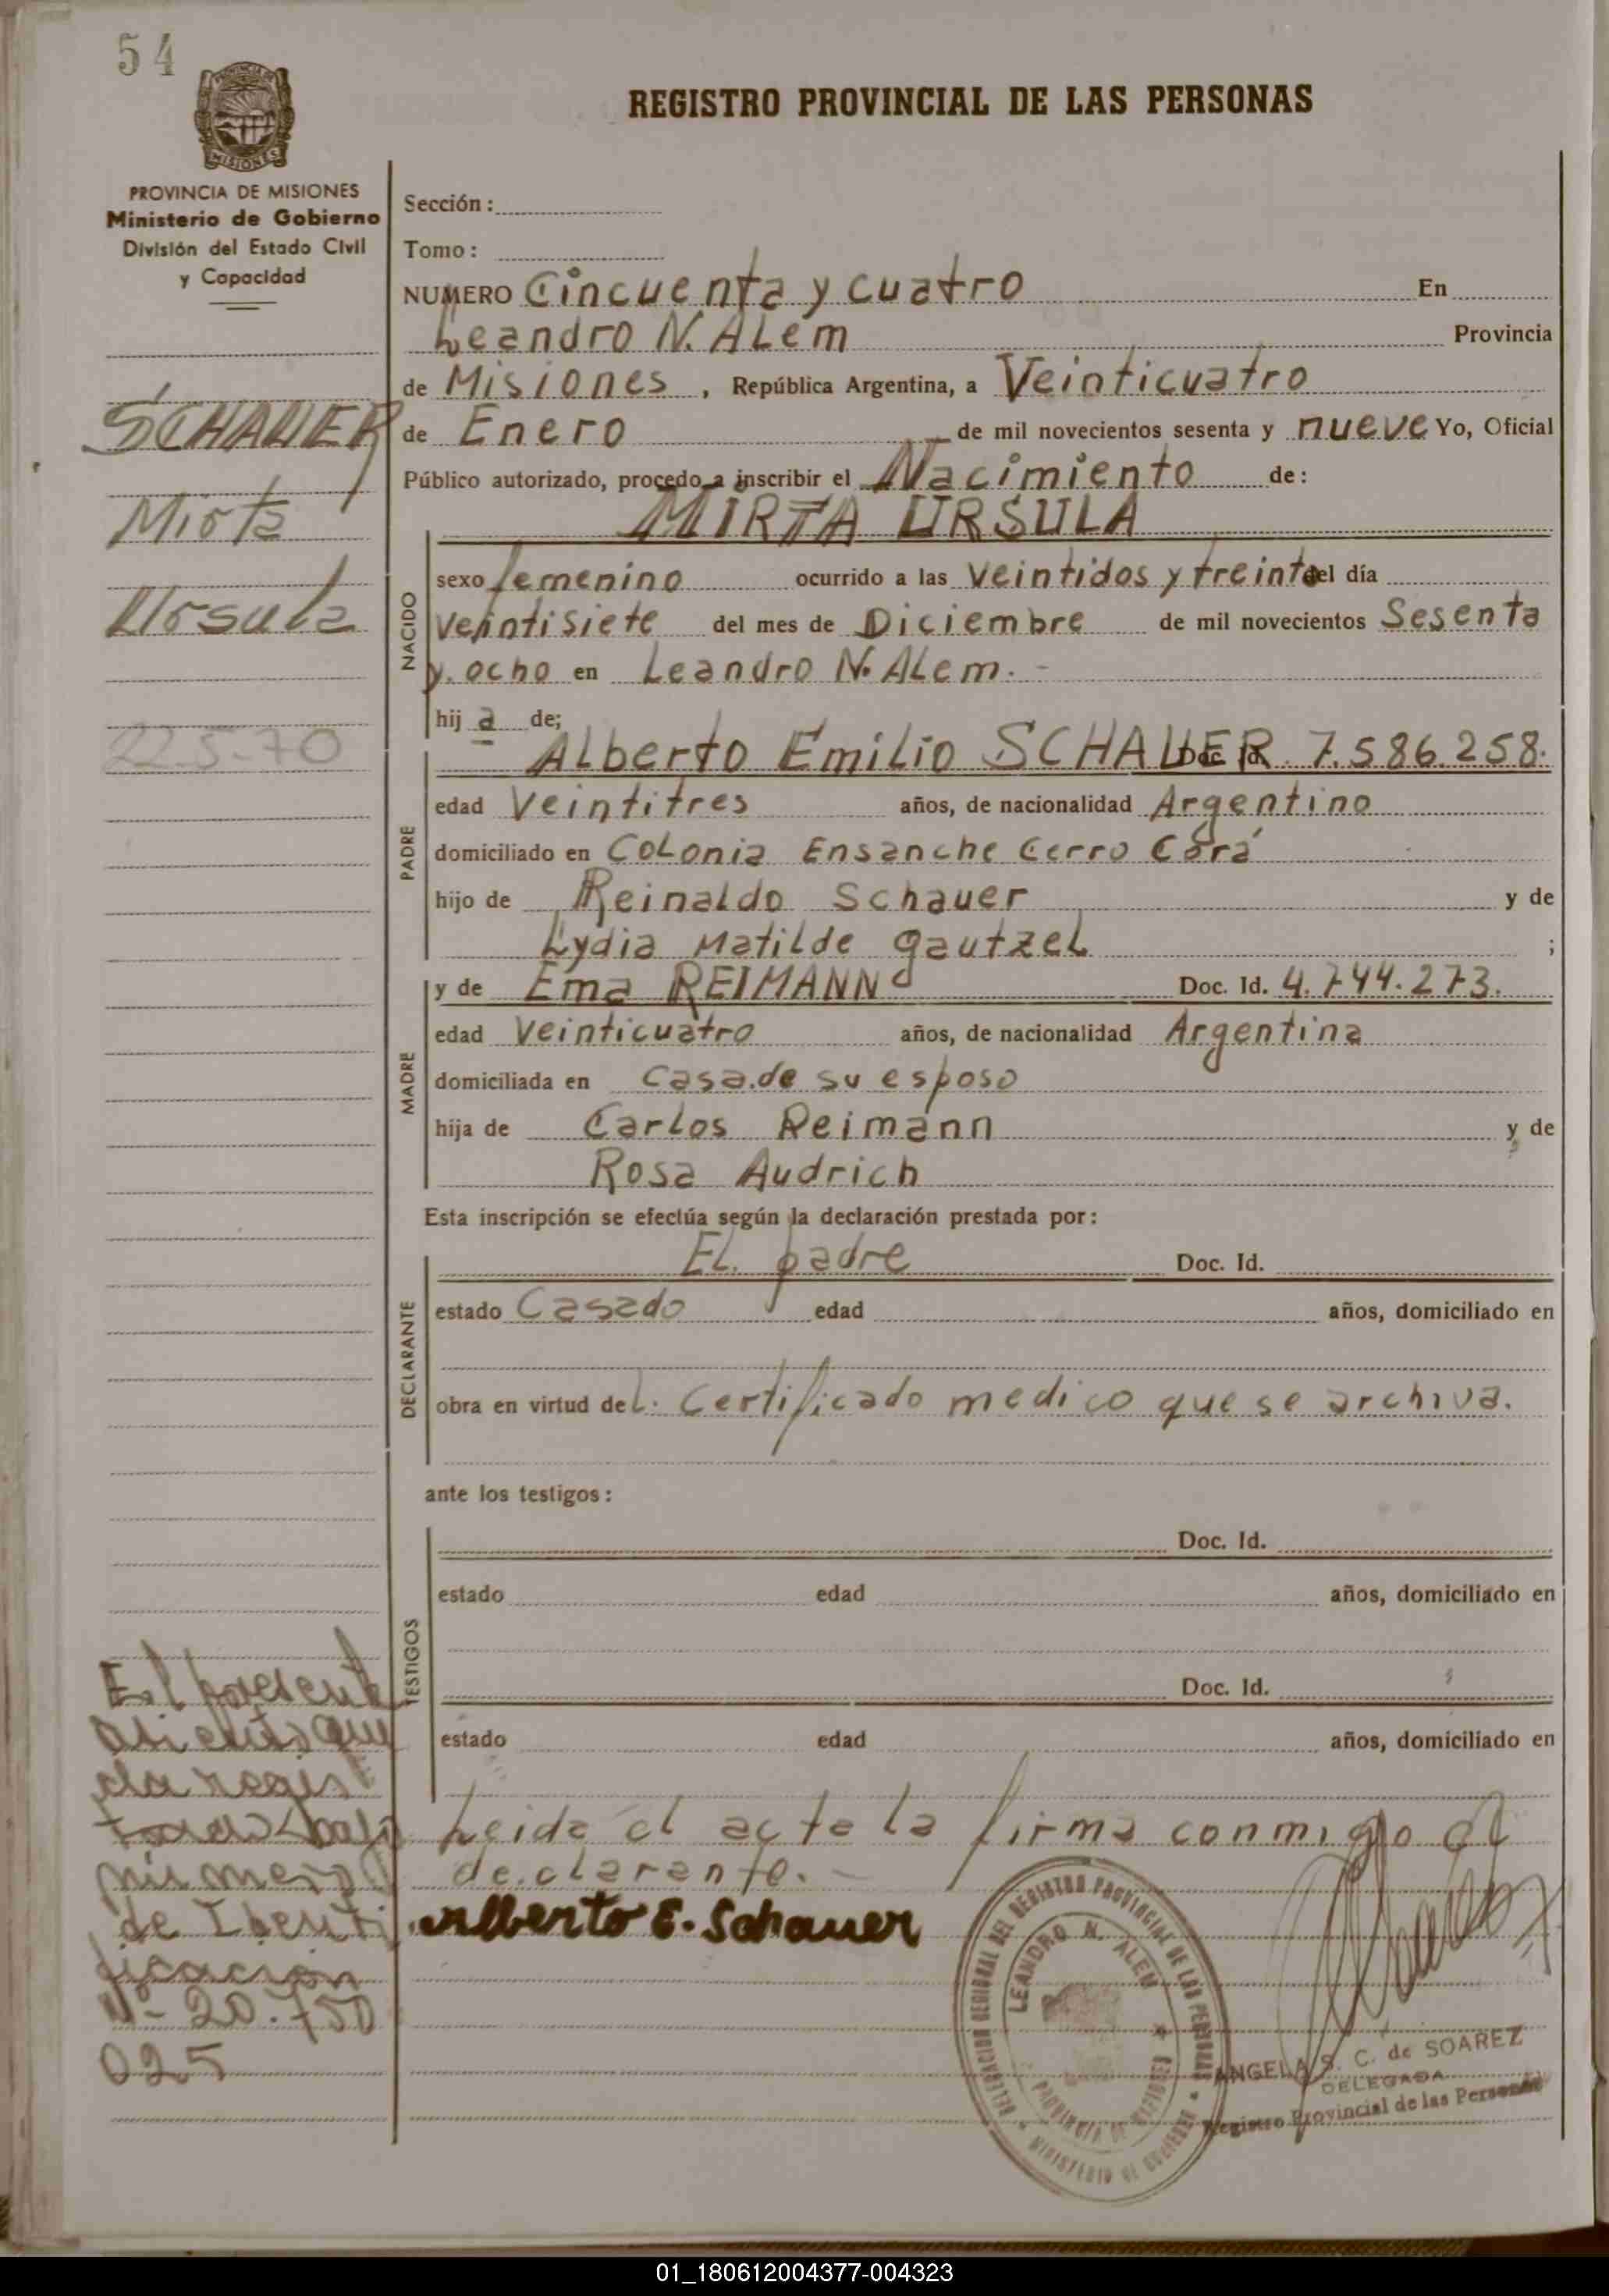 54
PROVINCIA DE
MISIONES
REGISTRO PROVINCIAL DE LAS PERSONAS
PROVINCIA DE MISIONES
Ministerio de Gobierno
División del Estado Civil
y Capacidad
SCHAUER
Mirta
Ursula
22-5-70
Sección:
Tomo:
NUMERO Cincuenta y cuatro En
Leandro N. ALem Provincia
de Misiones, República Argentina, a Veinticuatro
de Enero de mil novecientos sesenta y nueve Yo, Oficial
Público autorizado, procedo a inscribir el Nacimiento de:
MIRTA URSULA
NACIDO
sexo femenino ocurrido a las veintidos y treinta del día
veintisiete del mes de Diciembre de mil novecientos Sesenta
y ocho en Leandro N. ALem. -
hij a de;
PADRE
Alberto Emilio SCHAUER Doc. Id. 7.586.258.
edad Veintitres años, de nacionalidad Argentino
domiciliado en Colonia Ensanche Cerro Corá
hijo de Reinaldo Schauer y de
Lydia Matilde gautzel ;
MADRE
y de Ema REIMANN Doc. Id. 4.744.273.
edad Veinticuatro años, de nacionalidad Argentina
domiciliada en casa de su esposo
hija de Carlos Reimann y de
Rosa Audrich
Esta inscripción se efectúa según la declaración prestada por:
DECLARANTE
EL padre Doc. Id.
estado Casado edad años, domiciliado en
obra en virtud del. Certificado medico que se archiva.
ante los testigos:
TESTIGOS
Doc. Id.
estado edad años, domiciliado en
Doc. Id.
estado edad años, domiciliado en
Leida el acta la firma conmigo el
declarante. -
Alberto E. Schauer
El present
asiento que
da regis
trado bajo
número
de Identi
ficación
Nº 20.750
025
DELEGACION REGIONAL DEL REGISTRO PROVINCIAL DE LAS PERSONAS
MINISTERIO DE GOBIERNO
LEANDRO N. ALEM
PROVINCIA DE MISIONES
ANGELA S. C. de SOAREZ
DELEGADA
Registro Provincial de las Personas
01_180612004377-004323